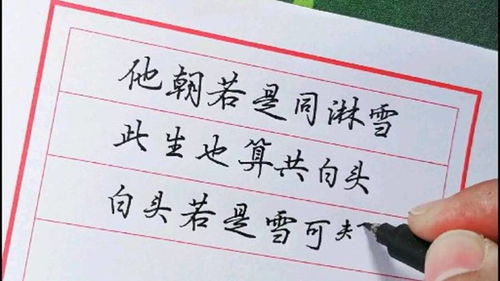 他朝若是同淋雪
此生也算共白头
白头若是雪可